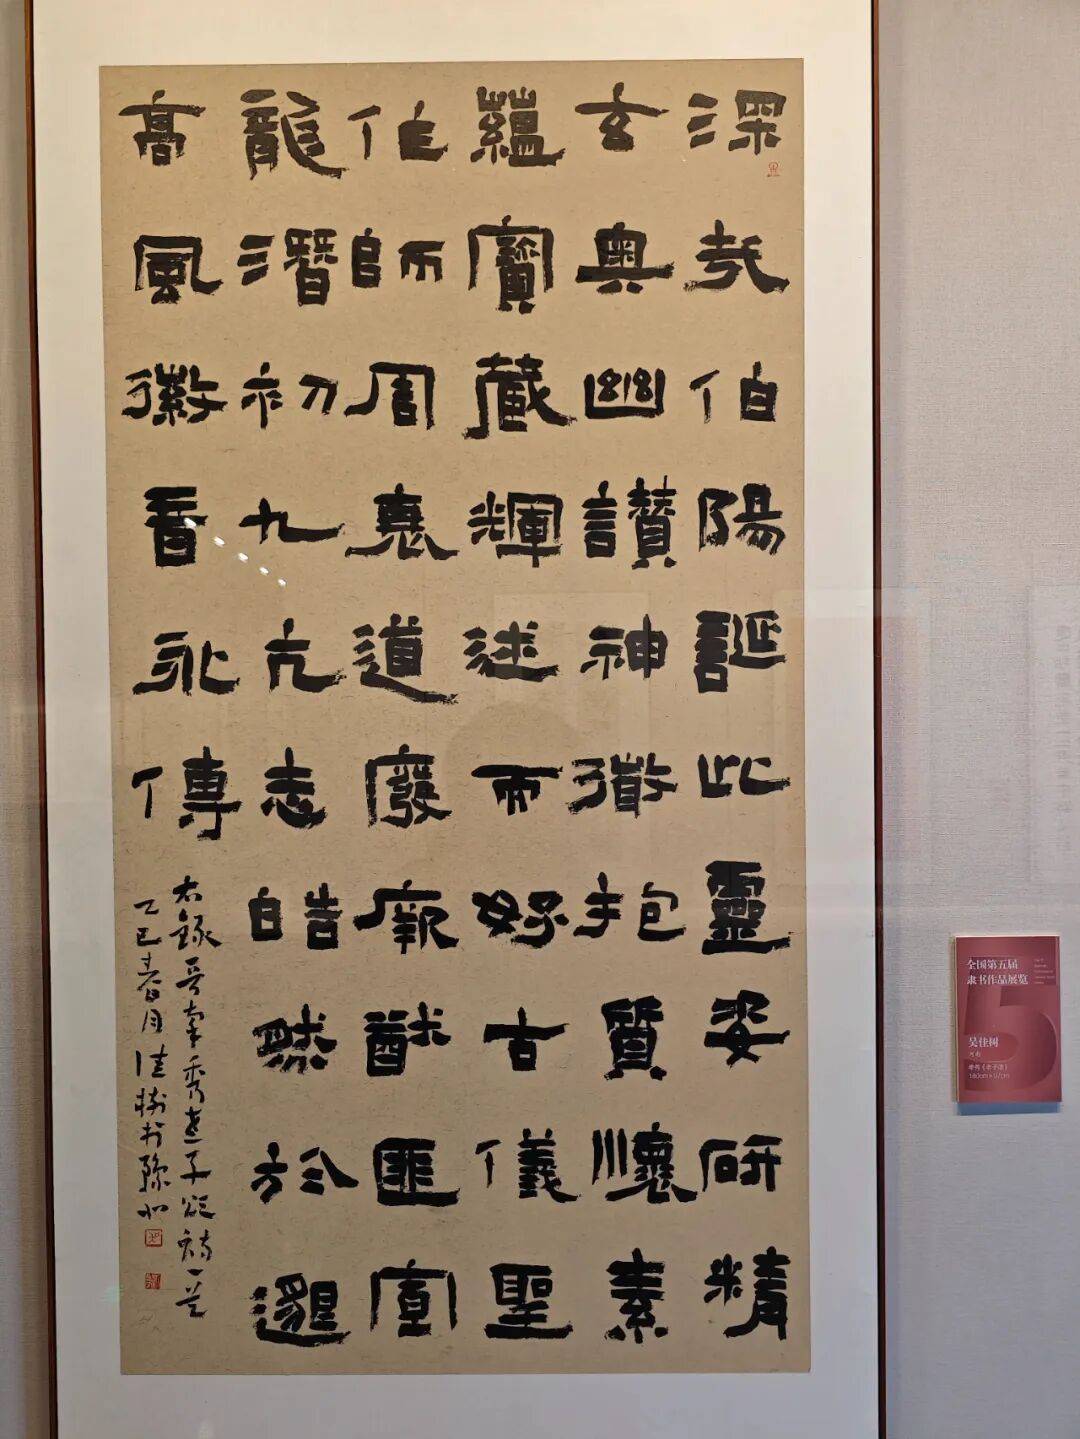 深哉伯陽誕此靈姿研精
玄奧幽讚神徵抱質懷素
蘊寶藏輝述而好古儀聖
作師周衰道廢厥猷匪宣
龍潛初九亢志皓然於邈
高風徽音永傳
右錄晉牽秀老子頌詩一首
乙巳春月佳樹書
全国第五届
隶书作品展览
5
吴佳树
河南
牵秀《老子颂》
180cm×97cm